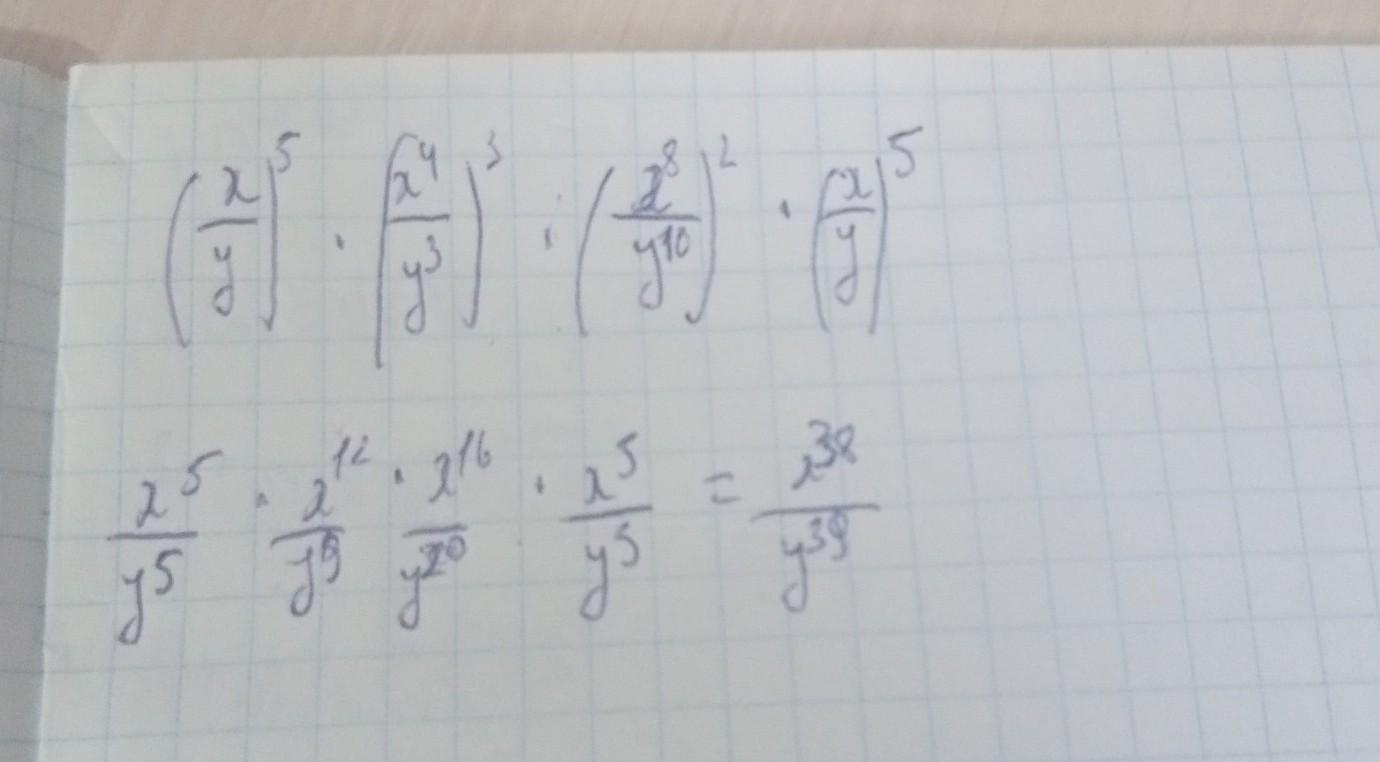 (x/y)^5 · (x^4/y^3)^3 : (x^8/y^10)^2 · (x/y)^5
x^5/y^5 · x^12/y^9 · x^16/y^20 · x^5/y^5 = x^38/y^39